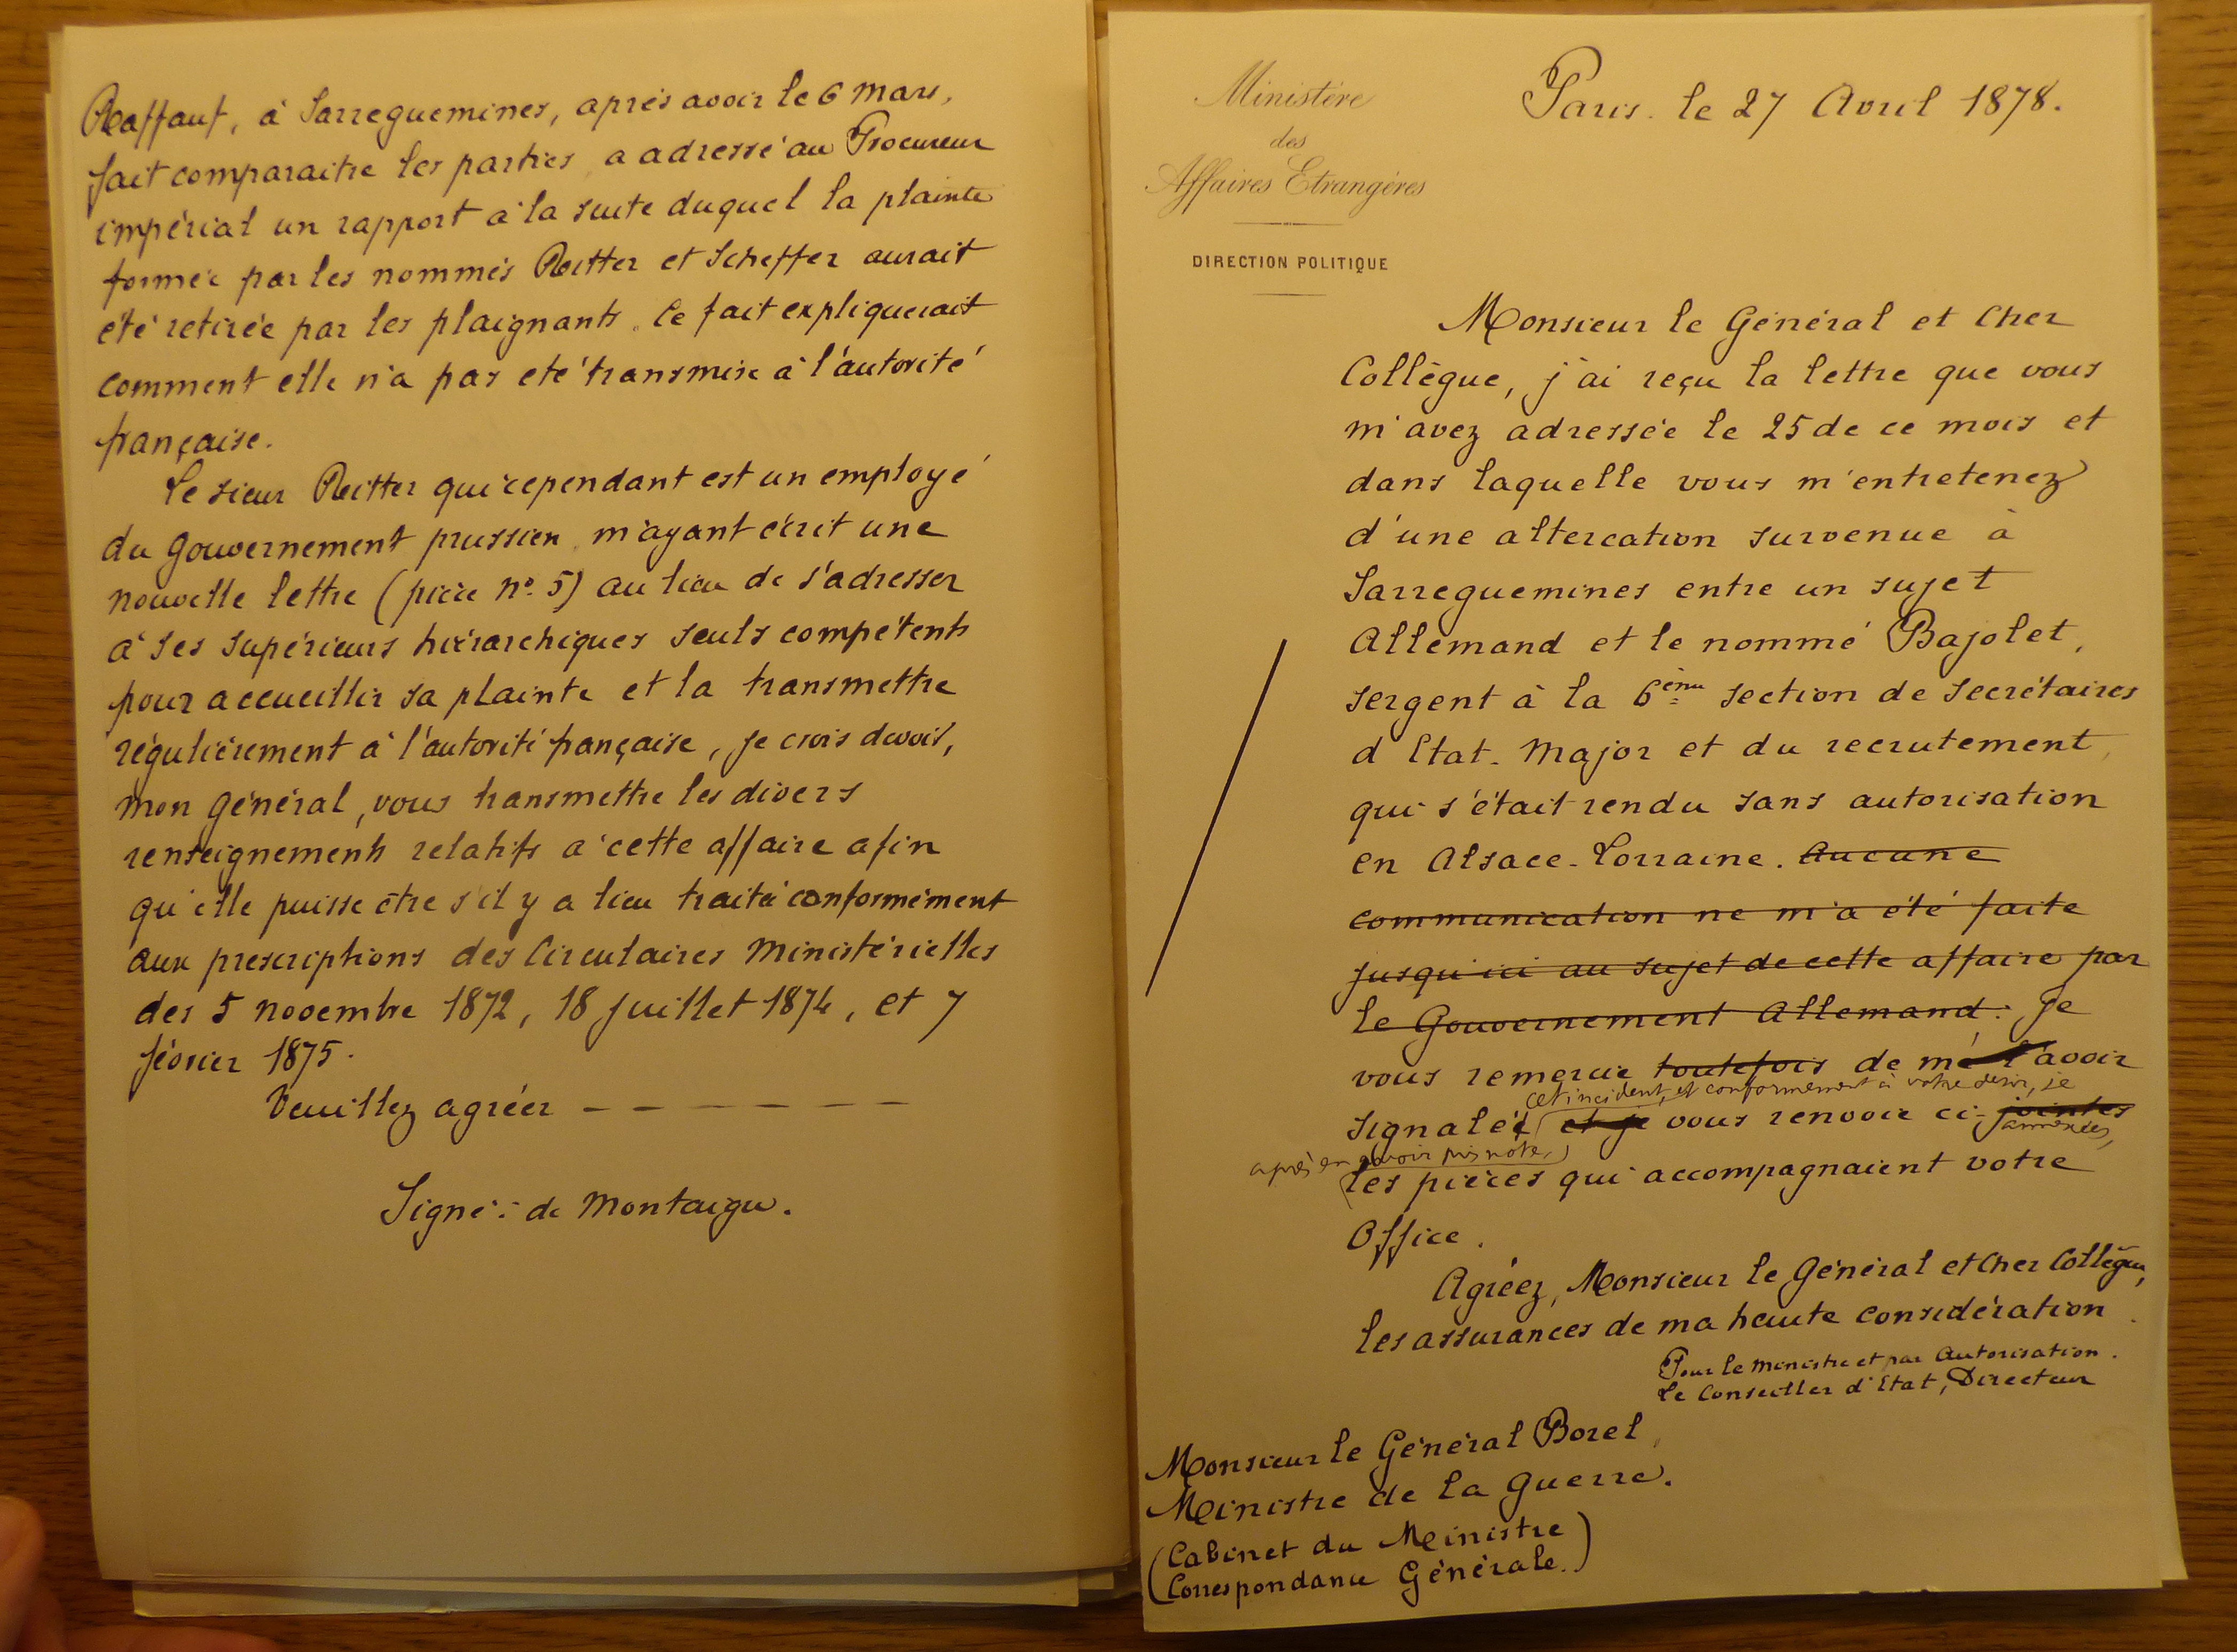 Raffauf, à Sarreguemines, après avoir le 6 Mars,
fait comparaitre les parties a adressé au Procureur
impérial un rapport à la suite duquel la plainte
formée par les nommés Ritter et Scheffer aurait
été retirée par les plaignants. Ce fait expliquerait
comment elle n'a pas eté transmise à l'autorité
française.
Le sieur Ritter qui cependant est un employé
du Gouvernement prussien m'ayant écrit une
nouvelle lettre (pièce no. 5) au lieu de s'adresser
à ses supérieurs hiérarchiques seuls compétents
pour accueillir sa plainte et la transmettre
régulièrement à l'autorité française, je crois devoir,
mon Général, vous transmettre les divers
renseignements relatifs à cette affaire afin
qu'elle puisse être s'il y a lieu traité conformément
aux prescriptions des Circulaires Ministérielles
des 5 novembre 1872, 18 juillet 1874, et 7
février 1875.
Veuillez agréer - - - - - - -
Signé : de Montaigu.
Ministère
des
Affaires Etrangères
DIRECTION POLITIQUE
Paris. le 27 Avril 1878.
Monsieur le Général et Cher
Collègue, j'ai reçu la lettre que vous
m'avez adressée le 25 de ce mois et
dans laquelle vous m'entretenez
d'une altercation survenue à
Sarreguemines entre un sujet
Allemand et le nommé Bajolet,
sergent à la 6ème section de Secrétaires
d'Etat-Major et du recrutement,
qui s'était rendu sans autorisation
en Alsace-Lorraine. Aucune
communication ne m'a été faite
jusqu'ici au sujet de cette affaire par
le Gouvernement Allemand. Je
vous remercie toutefois de me l'avoir
cet incident, et conformément à votre désir, je
signalé et je vous renvoie ci-jointes
annexées,
après en avoir pris note,
les pièces qui accompagnaient votre
Office.
Agréez, Monsieur le Général et Cher Collègue,
les assurances de ma haute considération.
Pour le Ministre et par Autorisation.
Le Conseiller d'Etat, Directeur
Monsieur le Général Borel,
Ministre de la Guerre.
(Cabinet du Ministre
Correspondance Générale.)